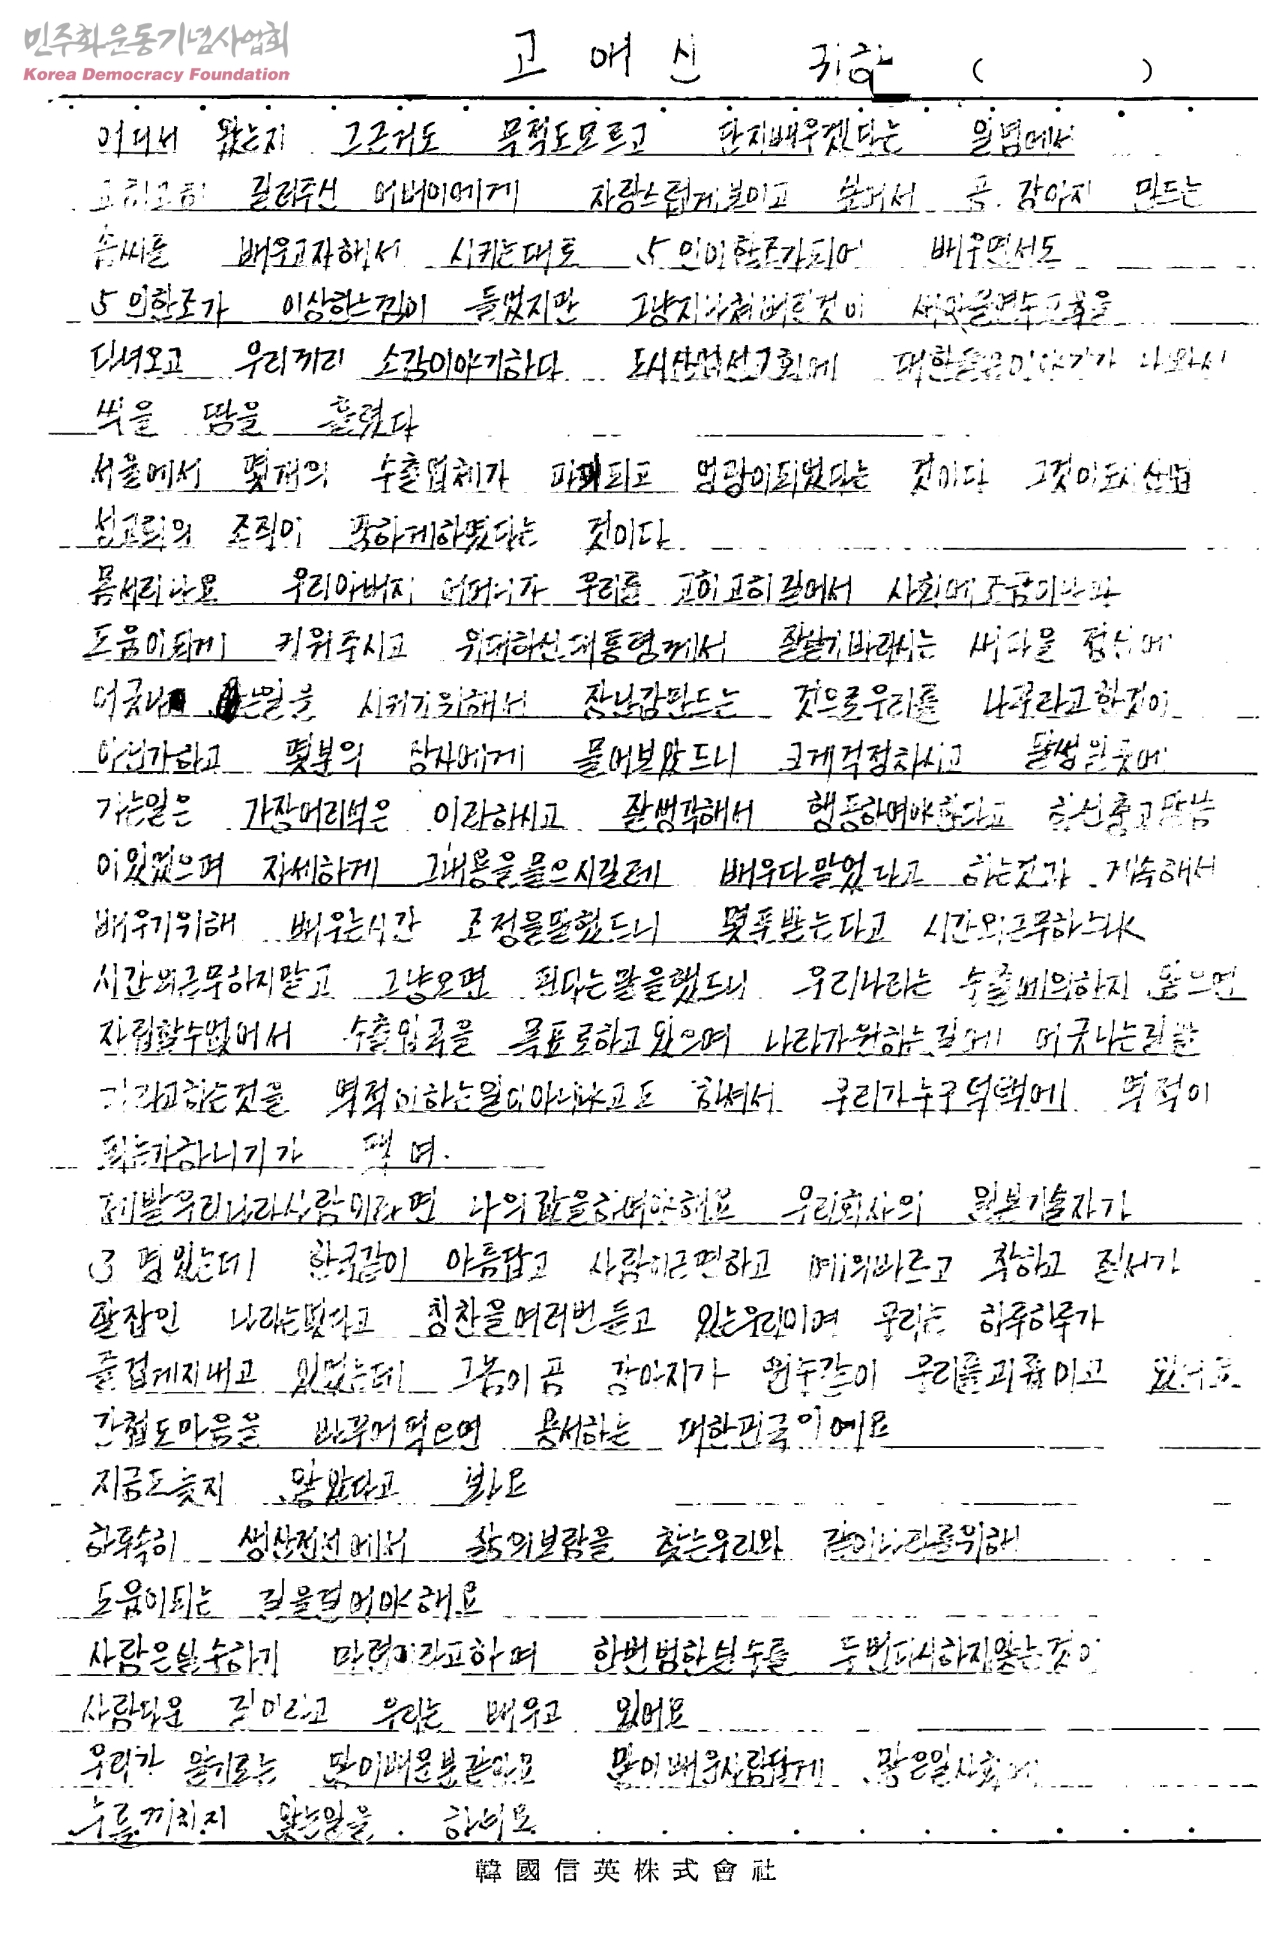 민주화운동기념사업회
Korea Democracy Foundation
고 애 신 귀하 ( )
어디서 왔는지 그근거도 목적도모르고 단지배우겠다는 일념에서
고히고히 길러주신 어버이에게 자랑스럽게보이고 곰. 강아지 만드는
솜씨를 배우고자해서 시키는대로 5인이한조가되어 배우면서도
5인한조가 이상한느낌이 들었지만 그냥지나쳐버린것이 새마을연수교육을
다녀오고 우리끼리 소감이야기하다 도시산업선교회에 대한 나와서
씩을 땀을 흘렸다
서울에서 몇개의 수출업체가 파괴되고 엉망이되었다는 것이다 그것이도시산업
선교회의 조직이 망하게하였다는 것이다
몸서리나요 우리아버지 어머니가 우리를 고히고히길러서 사회에조금이나마
도움이되게 키워주시고 위대하신대통령께서 잘살기바라시는 새마을 정신에
어긋나 는일을 시키기위해서 장난감만드는 것으로우리를 나꾸라고한것이
아닌가하고 몇분의 상사에게 물어보았드니 크게걱정하시고 말썽일곳에
가는일은 가장어리석은 이라하시고 잘생각해서 행동하여야한다고 하신충고말씀
이있었으며 자세하게 그내용을물으시길레 배우다말었다고 하는것과 계속해서
배우기위해 배우는시간 조정을말했드니 몇푼받는다고 시간외근무하느냐
시간외근무하지말고 그냥오면 된다는말을했드니 우리나라는 수출에의하지 않으면
자립할수없어서 수출입국을 목표로하고있으며 나라가원하는길에 어긋나는길을
가라고하는것을 역적이하는일이아니냐고도 하셔서 우리가누구덕택에 역적이
되는가하니기가 맥여.
제발우리나라사람이라면 나의값을하여야해요 우리회사의 일본기술자가
3명있는데 한국같이 아름답고 사람이근면하고 예의바르고 착하고 질서가
잘잡인 나라는없다고 칭찬을여러번듣고 있는우리이며 우리는 하루하루가
즐겁게지내고 있었는데 그놈이곰 강아지가 원수같이 우리를괴롭이고 있어요
간첩도마음을 바꾸어먹으면 용서하는 대한민국이예요
지금도늦지 않았다고 봐요
하루속히 생산전선에서 삶의보람을 찾는우리와 같이나라를위해
도움이되는 길을걸어야해요
사람은실수하기 마련이라고하며 한번범한실수를 두번다시하지않는것이
사람다운 길이라고 우리는 배우고 있어요
우리가 알기로는 많이배운분같아요 많이배운사람답게 많은일사회에
누를끼치지 않는일을. 하녀요
韓國信英株式會社